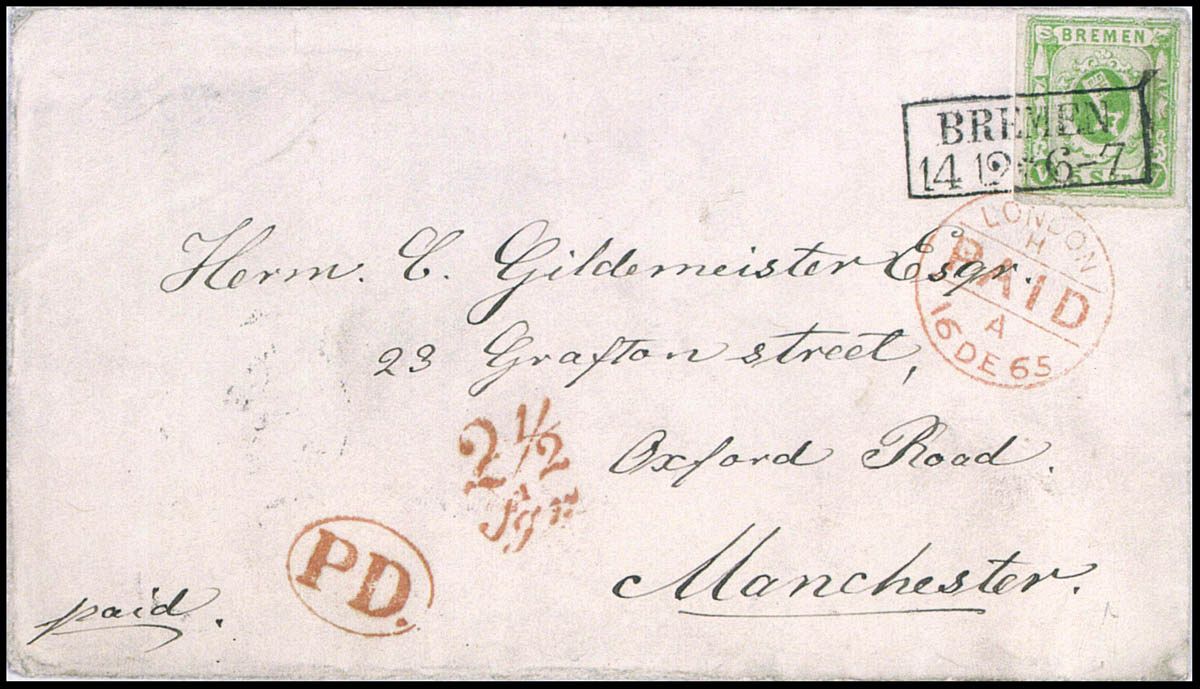 BREMEN
BREMEN
14 12 * 6-7
LONDON
H
PAID
A
16 DE 65
Herm. C. Gildemeister Esqr.
23 Grafton street,
Oxford Road.
Manchester.
2 1/2
Sgr
PD.
paid.